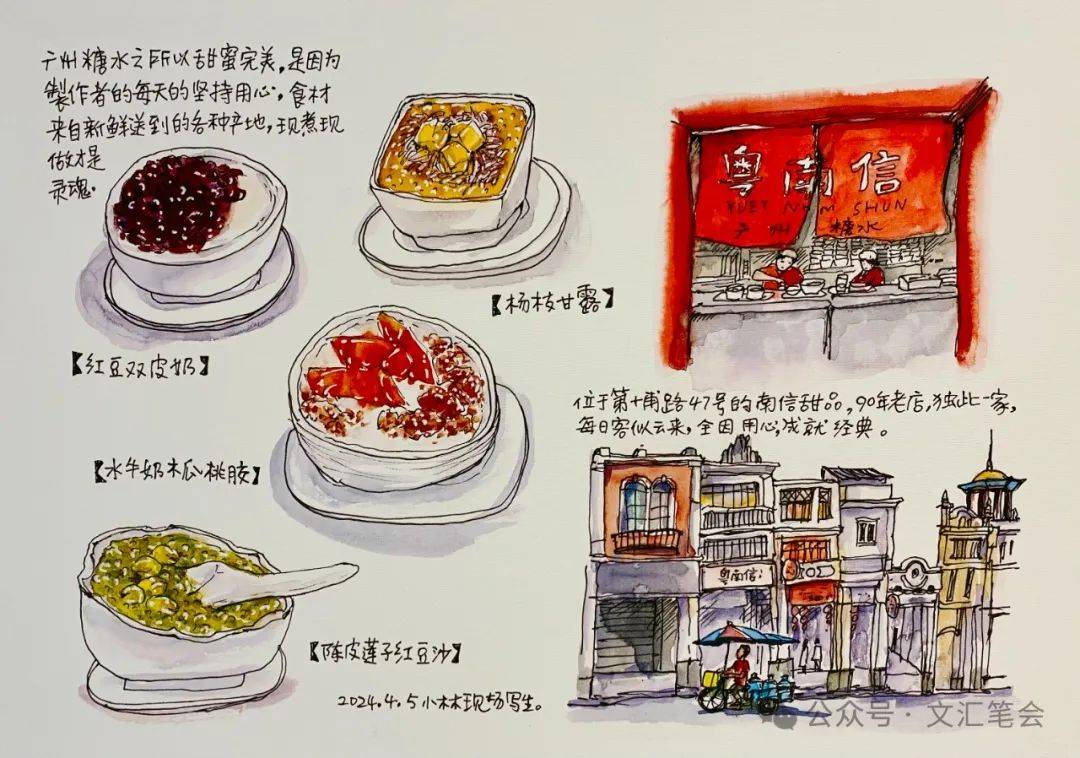 广州糖水之所以甜蜜完美，是因为
製作者的每天的坚持用心，食材
来自新鲜送到的各种产地，现煮现
做才是
灵魂.
【红豆双皮奶】
【杨枝甘露】
【水牛奶木瓜桃胶】
【陈皮莲子红豆沙】
2024.4.5小林现场写生。
粤南信
YUET NAM SHUN
广州糖水
位于第十甫路47号的南信甜品，90年老店，独此一家，
每日客似云来，全因用心，成就经典。
粤南信
公众号·文汇笔会